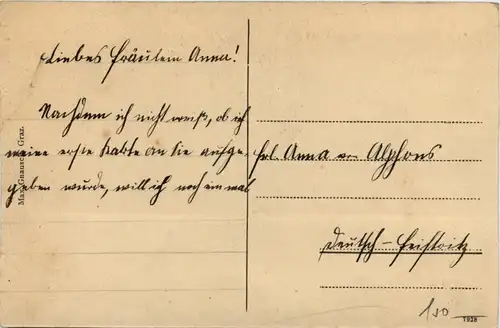 Liebes Fräulein Anna!
Nachdem ich nicht weiß, ob ich
meine erste Karte an Sie aufge-
geben wurde, will ich noch einmal
Frl. Anna von Alphons
Deutsch-Feistritz
Graz.
150
1928